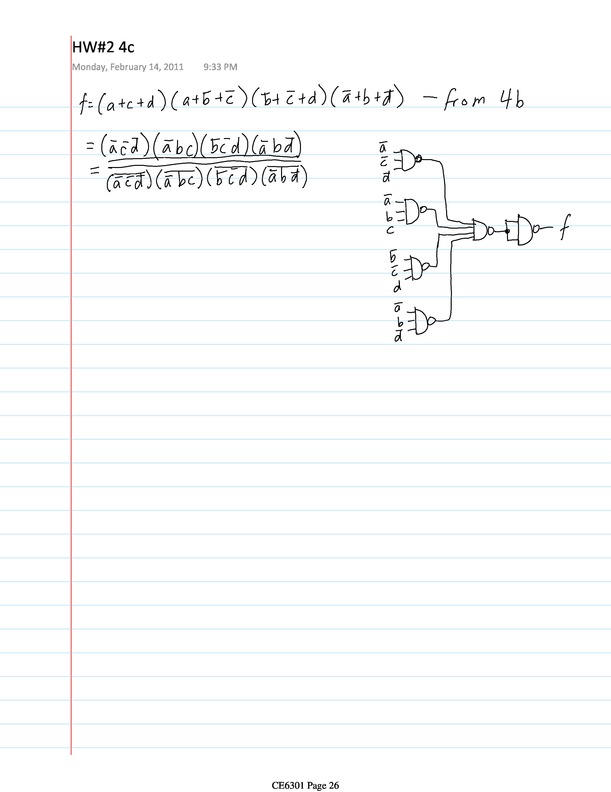 HW#2 4c
Monday, February 14, 2011 9:33 PM
f=(a+c+d)(a+b̄+c̄)(b̄+c̄+d)(ā+b+d̄) – from 4b
= (ā c̄ d̄)(ā b c)(b̄ c̄ d)(ā b d̄)
= (ā c̄ d̄)(ā b c)(b̄ c̄ d)(ā b d̄)
ā
c̄
d̄
ā
b
c
f
b̄
c̄
d
ā
b
d̄
CE6301 Page 26